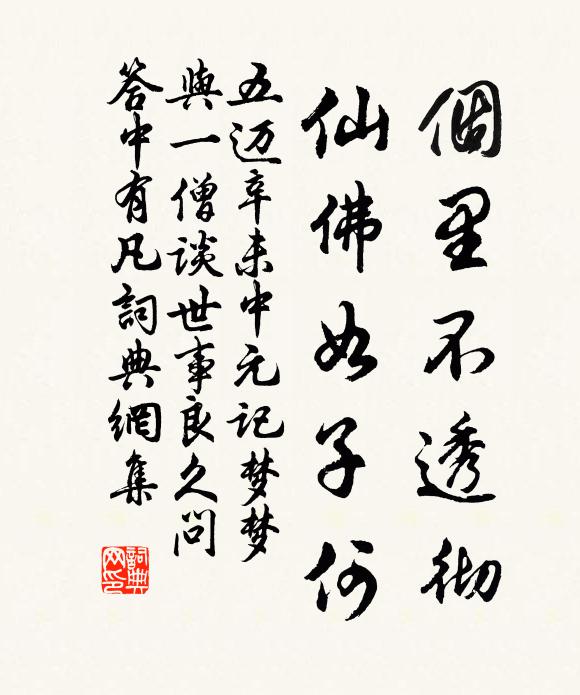 個里不透彻
仙佛如子何
五迈辛未中元记梦梦
與一僧談世事良久問
答中有凡詞典網集
詞典网印